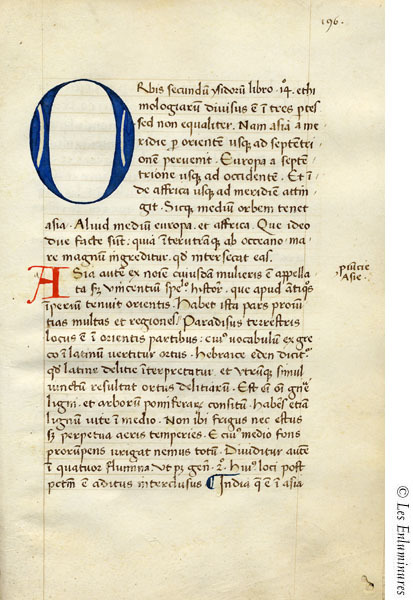 196.
ORbis secundũ ysidorũ libro · 14 · ethi
mologiarũ diuisus ẽ ĩ tres ptes
sed non equaliter. Nam asia a me
ridie p orientẽ usq; ad septentri
onẽ peruenit. Europa a septẽ
trione usq; ad occidentẽ. Et ĩ
de affrica usq; ad meridiẽ attin
git. Sicq; mediũ orbem tenet
asia. Aliud mediũ europa. et affrica. Que ideo
due facte sũt. quia ĩterutrãq; ab occeano ma
re magnũ ingreditur. qd inter secat eas.
ASia autẽ ex noĩe cuiusdã mulieris ẽ appella
ta scdȝ Vincentiũ spe. histor. que apud ãtiqos
ĩperiũ tenuit orientis. Habet ista pars prouĩ
tias multas et regiones. Paradisus terrestris
locus ẽ ĩ orientis partibus: cuiꝰ uocabulũ ex gre
co ĩ latinũ uertitur ortus. Hebraice eden dicit~.
qd latine delitie ĩterpretatur. et utrũq; simul
iunctũ resultat ortus delitiarũ. Est eĩ oĩ gnẽ
ligni. et arborũ pomiferarȝ consitũ. Habẽs etiã
lignũ uite ĩ medio. Non ibi frigus nec estus
sȝ perpetua aeris temperies. E cuiꝰ medio fons
prorũpens irrigat nemus totũ. Diuiditur autẽ
ĩ quatuor flumina ut pȝ gen. 2. Huiꝰ loci post
petm ẽ aditus interclusus ¶ India que ẽ ĩ asia
puĩcie
Asie.
© Les Enluminures